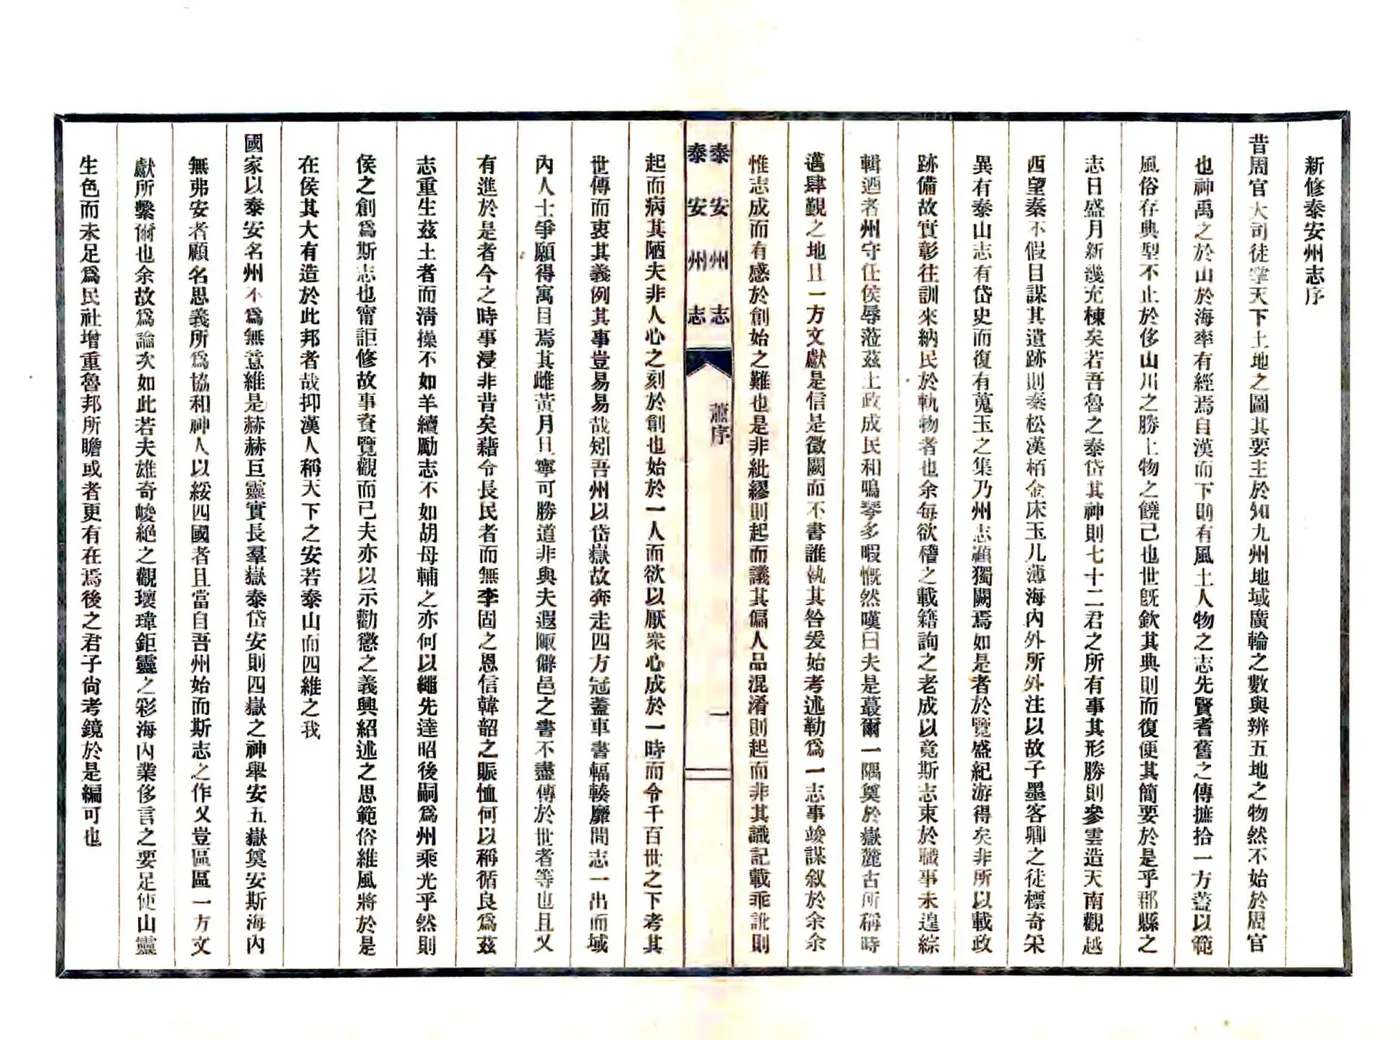 新修泰安州志序
昔周官大司徒掌天下土地之圖其要主於知九州地域廣輪之數與辨五地之物然不始於周官
也神禹之於山於海率有經焉自漢而下則有風土人物之志先賢耆舊之傳摭拾一方蓋以範
風俗存典型不止於侈山川之勝土物之饒已也世旣欽其典則而復便其簡要於是乎郡縣之
志日盛月新幾充棟矣若吾魯之泰岱其神則七十二君之所有事其形勝則參雲造天南觀越
西望秦不假目謀其遺跡則秦松漢栢金床玉几薄海內外所外注以故子墨客卿之徒標奇采
異有泰山志有岱史而復有蒐玉之集乃州志顧獨闕焉如是者於覽盛紀游得矣非所以載政
跡備故實彰往訓來納民於軌物者也余每欲稽之載籍詢之老成以竟斯志束於職事未遑綜
輯迺者州守任侯辱蒞茲土政成民和鳴琴多暇慨然嘆曰夫是蕞爾一隅奠於嶽麓古所稱時
邁肆覲之地且一方文獻是信是徵闕而不書誰執其咎爰始考述勒爲一志事竣謀敘於余余
惟志成而有感於創始之難也是非紕繆則起而議其偏人品混淆則起而非其識記載乖訛則
泰安州志
泰安州志
蕭序
一
起而病其陋夫非人心之刻於創也始於一人而欲以厭衆心成於一時而令千百世之下考其
世傳而衷其義例其事豈易易哉矧吾州以岱嶽故奔走四方冠蓋車書輻輳靡間志一出而域
內人士爭願得寓目焉其雌黃月旦寧可勝道非與夫遐陬僻邑之書不盡傳於世者等也且又
有進於是者今之時事浸非昔矣藉令長民者而無李固之恩信韓韶之賑恤何以稱循良爲茲
志重生茲土者而清操不如羊續勵志不如胡母輔之亦何以繩先達昭後嗣爲州乘光乎然則
侯之創爲斯志也甯詎修故事資覽觀而已夫亦以示勸懲之義興紹述之思範俗維風將於是
在侯其大有造於此邦者哉抑漢人稱天下之安若泰山而四維之我
國家以泰安名州不爲無意維是赫赫巨靈實長羣嶽泰岱安則四嶽之神舉安五嶽奠安斯海內
無弗安者顧名思義所爲協和神人以綏四國者且當自吾州始而斯志之作又豈區區一方文
獻所繫爾也余故爲論次如此若夫雄奇峻絕之觀瓌瑋鉅靈之彩海內業侈言之要足使山靈
生色而未足爲民社增重魯邦所瞻或者更有在焉後之君子尙考鏡於是編可也